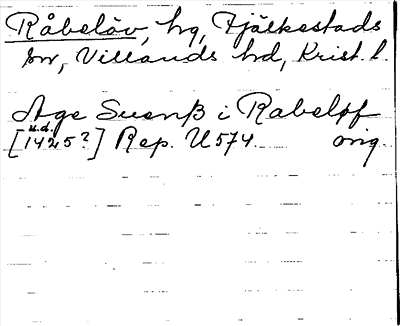 Råbelöv, hg, Fjälkestads
sn, Villands hd, Krist. l.
Age Suenß i Rabeløf
u.d.
[1425?] Rep. U 574 orig.